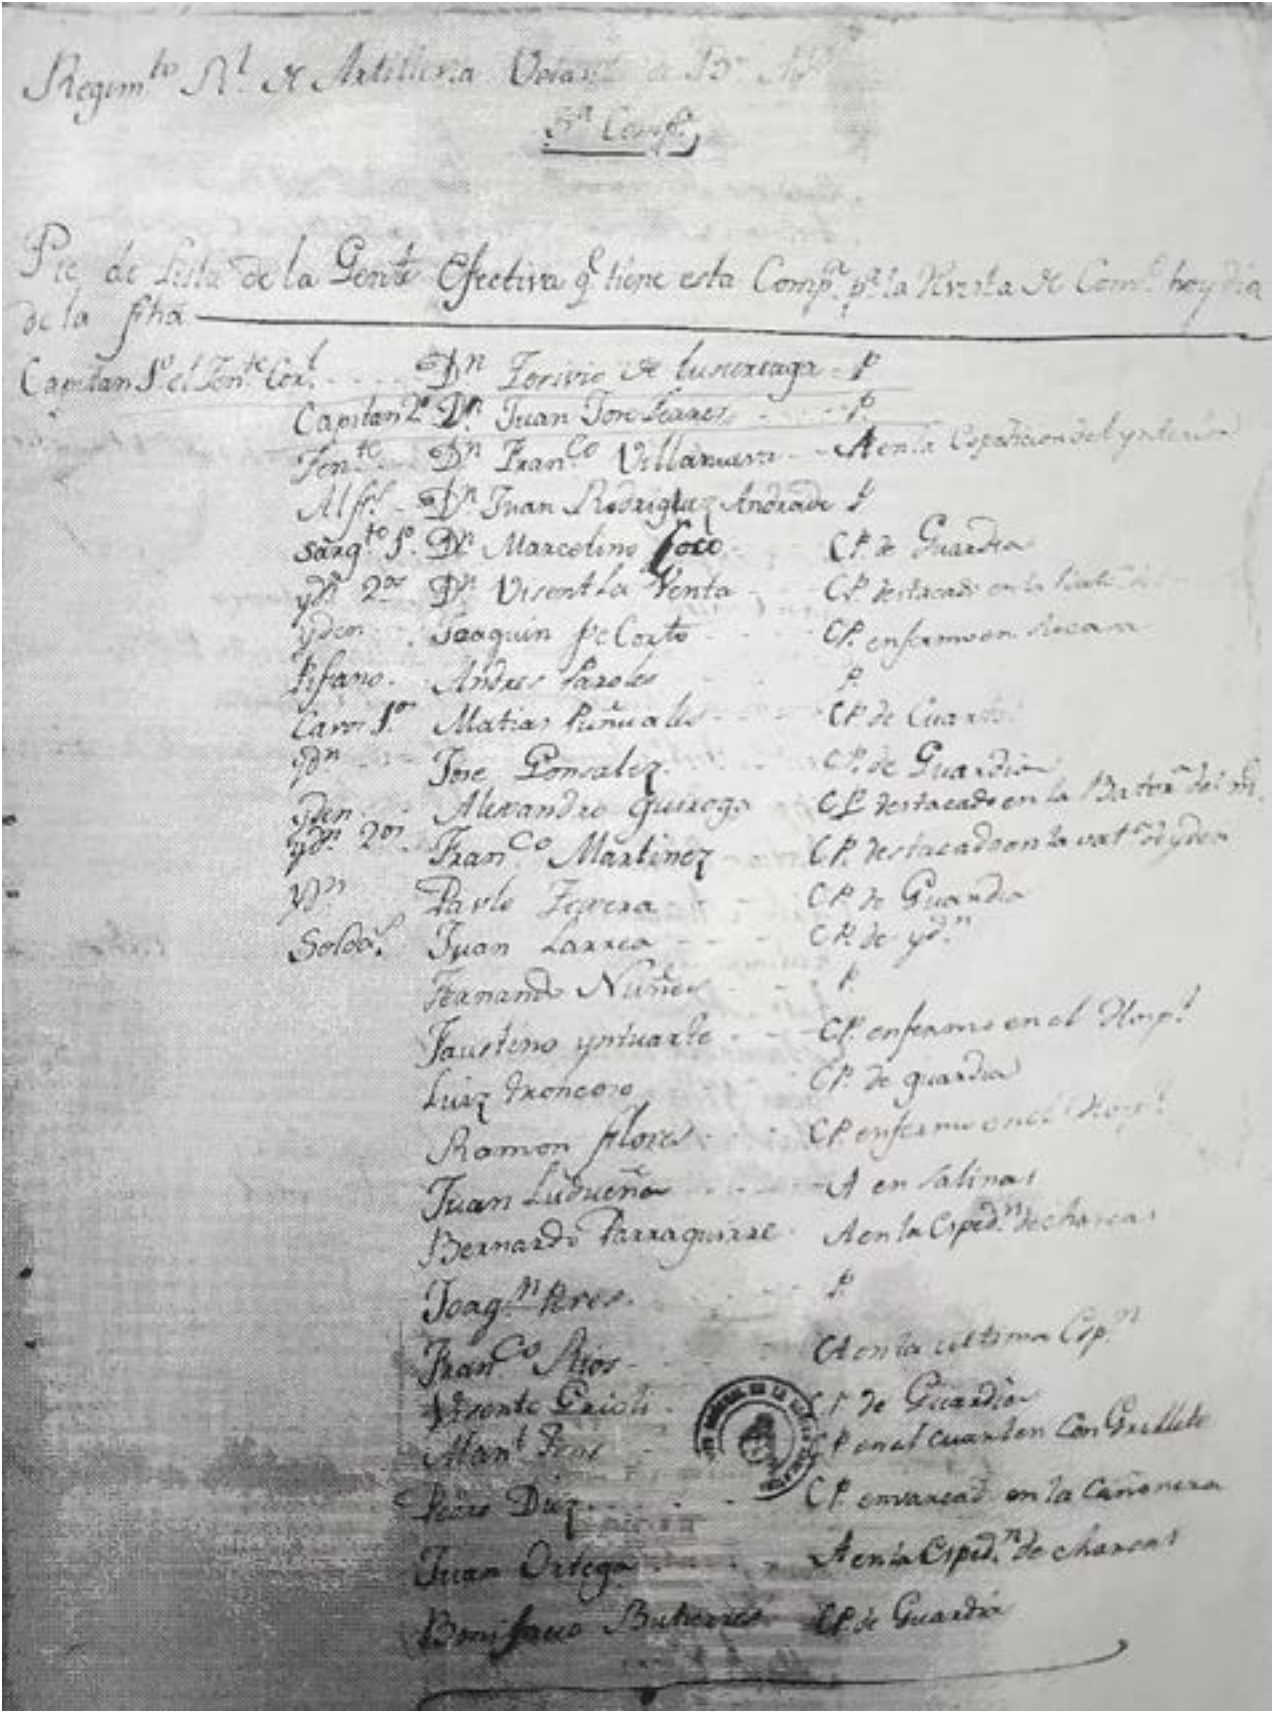 Regim.to R.l de Artilleria Volan de B.s
3.a Comp.a
Pie de Lista de la Gente Efectiva q.e tiene esta Comp.a p.a la Revista de Com.o hoy dia
de la fha
Capitan 1.o el Ten.te Cor.l Dn Torivio de Lusureaga P
Capitan 2.o Dn. Juan Jose P.
Ten.te Dn Fran.co Villanueva A en la Espedicion del ynterior
Alfs. Dn Juan Rodriguez Andrade P
Sarg.to 1.o Dn. Marcelino Coco CP. de Guardia
ydn 2.os Dn Visente La Venta CP. destacado en la
yden Joaquin de Corto CP. enfermo en su casa
Pifano. Andres Paroles P.
Cavos 1.os Matias Puñuales CP. de
ydn Jose Gonsalez. CP. de Guardia
yden Alexandro Quiroga CP. destacado en la Bater.a del
ydn. 2.os Fran.co Martinez CP. destacado en la vat.a de yden
ydn Pavlo CP. de Guardia
Soldas. Juan Larrea CP. de yd.n
Fernando Nuñes P.
Faustino yntuarte CP. enfermo en el Hosp.l
Luiz troncoso CP. de guardia
Ramon flores CP enfermo en el Hosp.l
Juan Ludueña A en Salinas
Bernardo Parraguirre A en la Esped.n de charcas
Joaq.n Peres. P
Fran.co Rios A en la ultima Esp.n
Visente CP de Guardia
Man.l CP en el cuartel con Grillete
Pedro Diez CP. envarcad en la Cañonera
Juan Ortega A en la Esped.n de charcas
Bonifacio Butierres CP. de Guardia